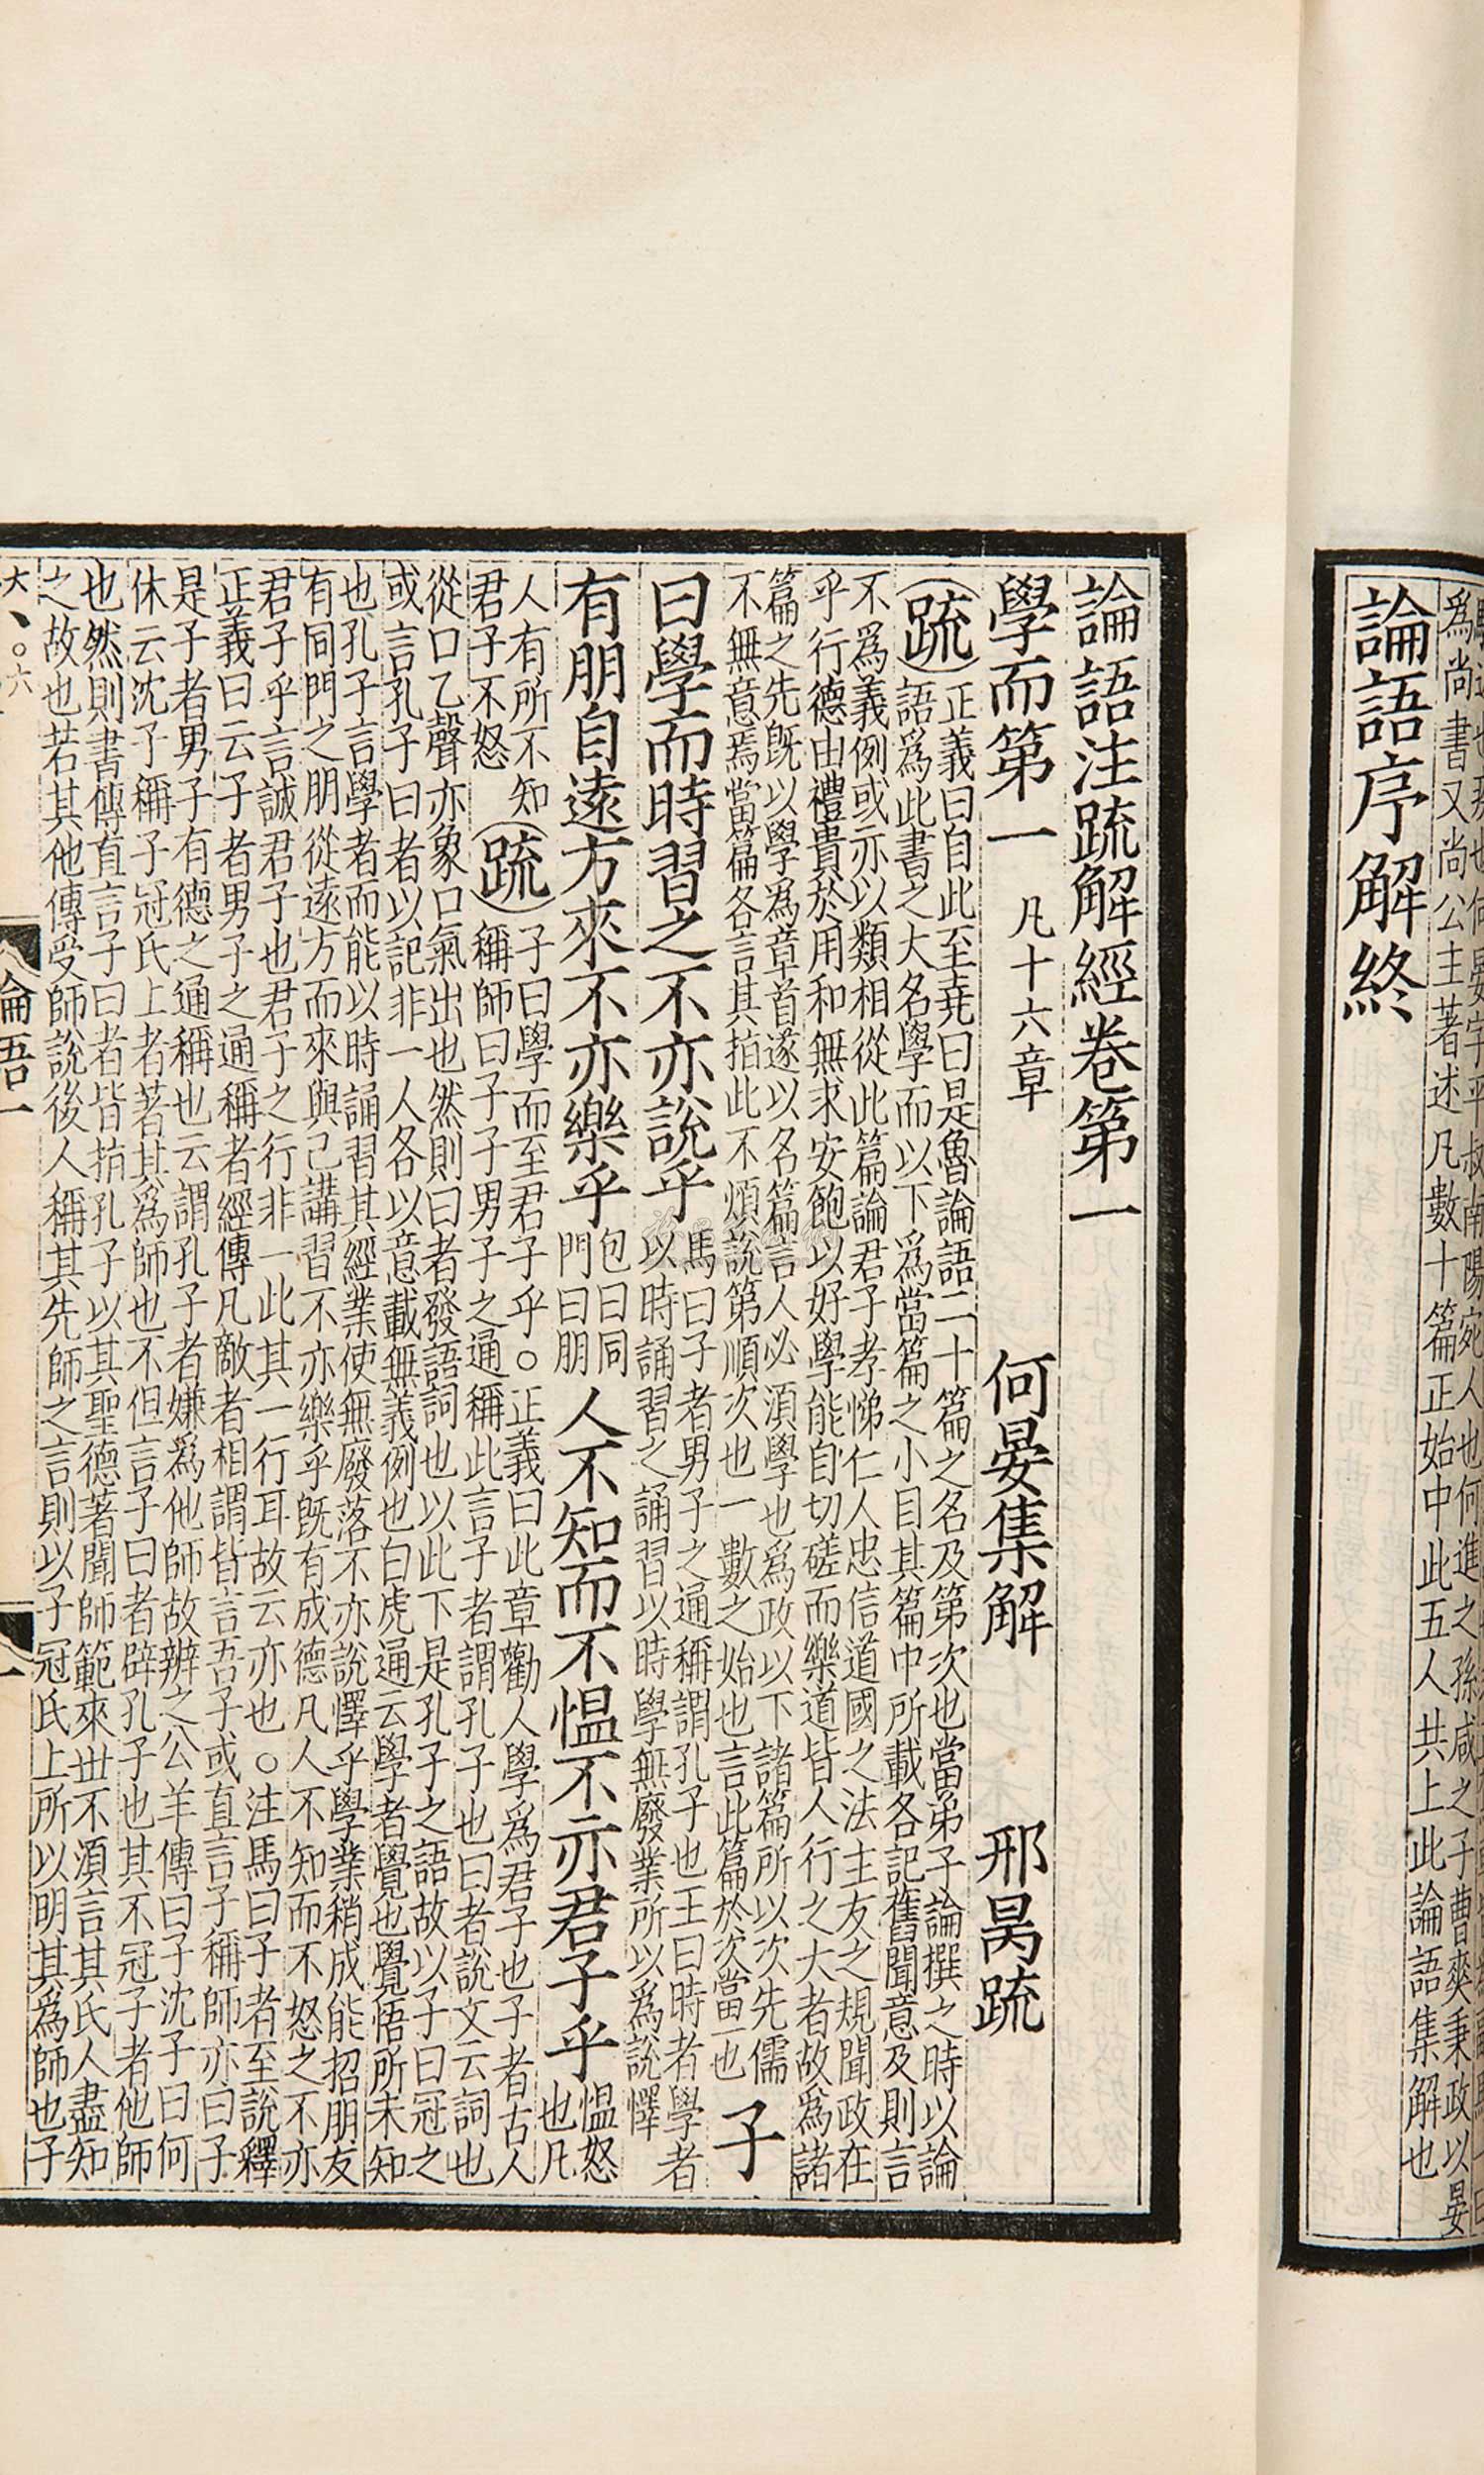 何晏字平叔南陽宛人也何進之孫咸之子曹爽秉政以晏
爲尚書又尚公主著述凡數十篇正始中此五人共上此論語集解也
論語序解終
論語注疏解經卷第一
學而第一 凡十六章 何晏集解 邢昺疏
(疏) 正義曰自此至堯曰是魯論語二十篇之名及第次也當弟子論撰之時以論
語爲此書之大名學而以下爲當篇之小目其篇中所載各記舊聞意及則言
不爲義例或亦以類相從此篇論君子孝悌仁人忠信道國之法主友之規聞政在
乎行德由禮貴於用和無求安飽以好學能自切磋而樂道皆人行之大者故爲諸
篇之先既以學爲章首遂以名篇言人必須學也爲政以下諸篇所以次先儒
不無意焉當篇各言其指此不煩說第順次也一數之始也言此篇於次當一也 子
曰學而時習之不亦說乎 馬曰子者男子之通稱謂孔子也王曰時者學者
以時誦習之誦習以時學無廢業所以爲說懌
有朋自遠方來不亦樂乎 包曰同
門曰朋 人不知而不慍不亦君子乎 慍怒
也凡
人有所不知
君子不怒 (疏) 子曰學而至君子乎。正義曰此章勸人學爲君子也子者古人
稱師曰子子男子之通稱此言子者謂孔子也曰者說文云詞也
從口乙聲亦象口氣出也然則曰者發語詞也以此下是孔子之語故以子曰冠之
或言孔子曰者以記非一人各以意載無義例也白虎通云學者覺也覺悟所未知
也孔子言學者而能以時誦習其經業使無廢落不亦說懌乎學業稍成能招朋友
有同門之朋從遠方而來與己講習不亦樂乎既有成德凡人不知而不怒之不亦
君子乎言誠君子也君子之行非一此其一行耳故云亦也。注馬曰子者至說釋
正義曰云子者男子之通稱者經傳凡敵者相謂皆言吾子或直言子稱師亦曰子
是子者男子有德之通稱也云謂孔子者嫌爲他師故辨之公羊傳曰子沈子曰何
休云沈子稱子冠氏上者著其爲師也不但言子曰者辟孔子也其不冠子者他師
也然則書傳直言子曰者皆指孔子以其聖德著聞師範來世不須言其氏人盡知
之故也若其他傳受師說後人稱其先師之言則以子冠氏上所以明其爲師也子
論語一